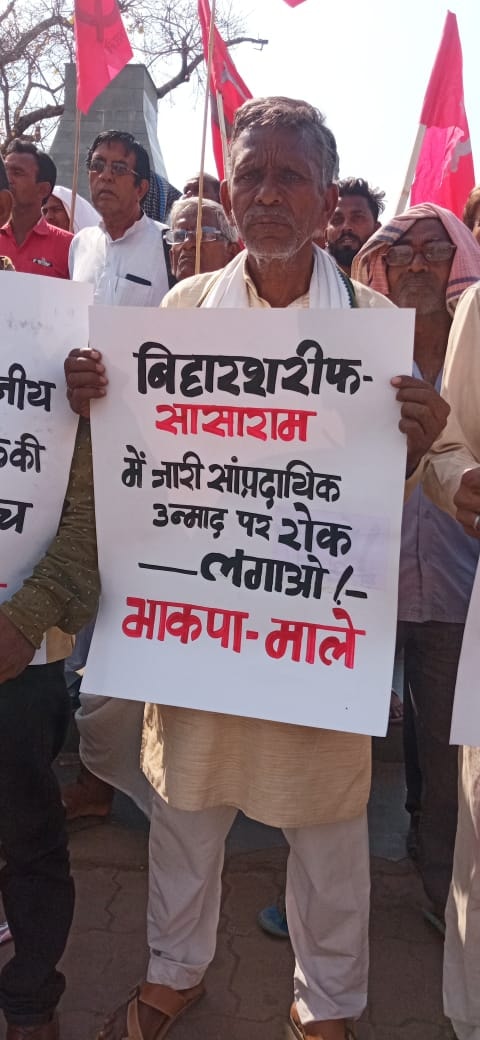 बिहारशरीफ-
सासाराम
में जारी सांप्रदायिक
उन्माद पर रोक
लगाओ!-
भाकपा-माले
नीय
की
च